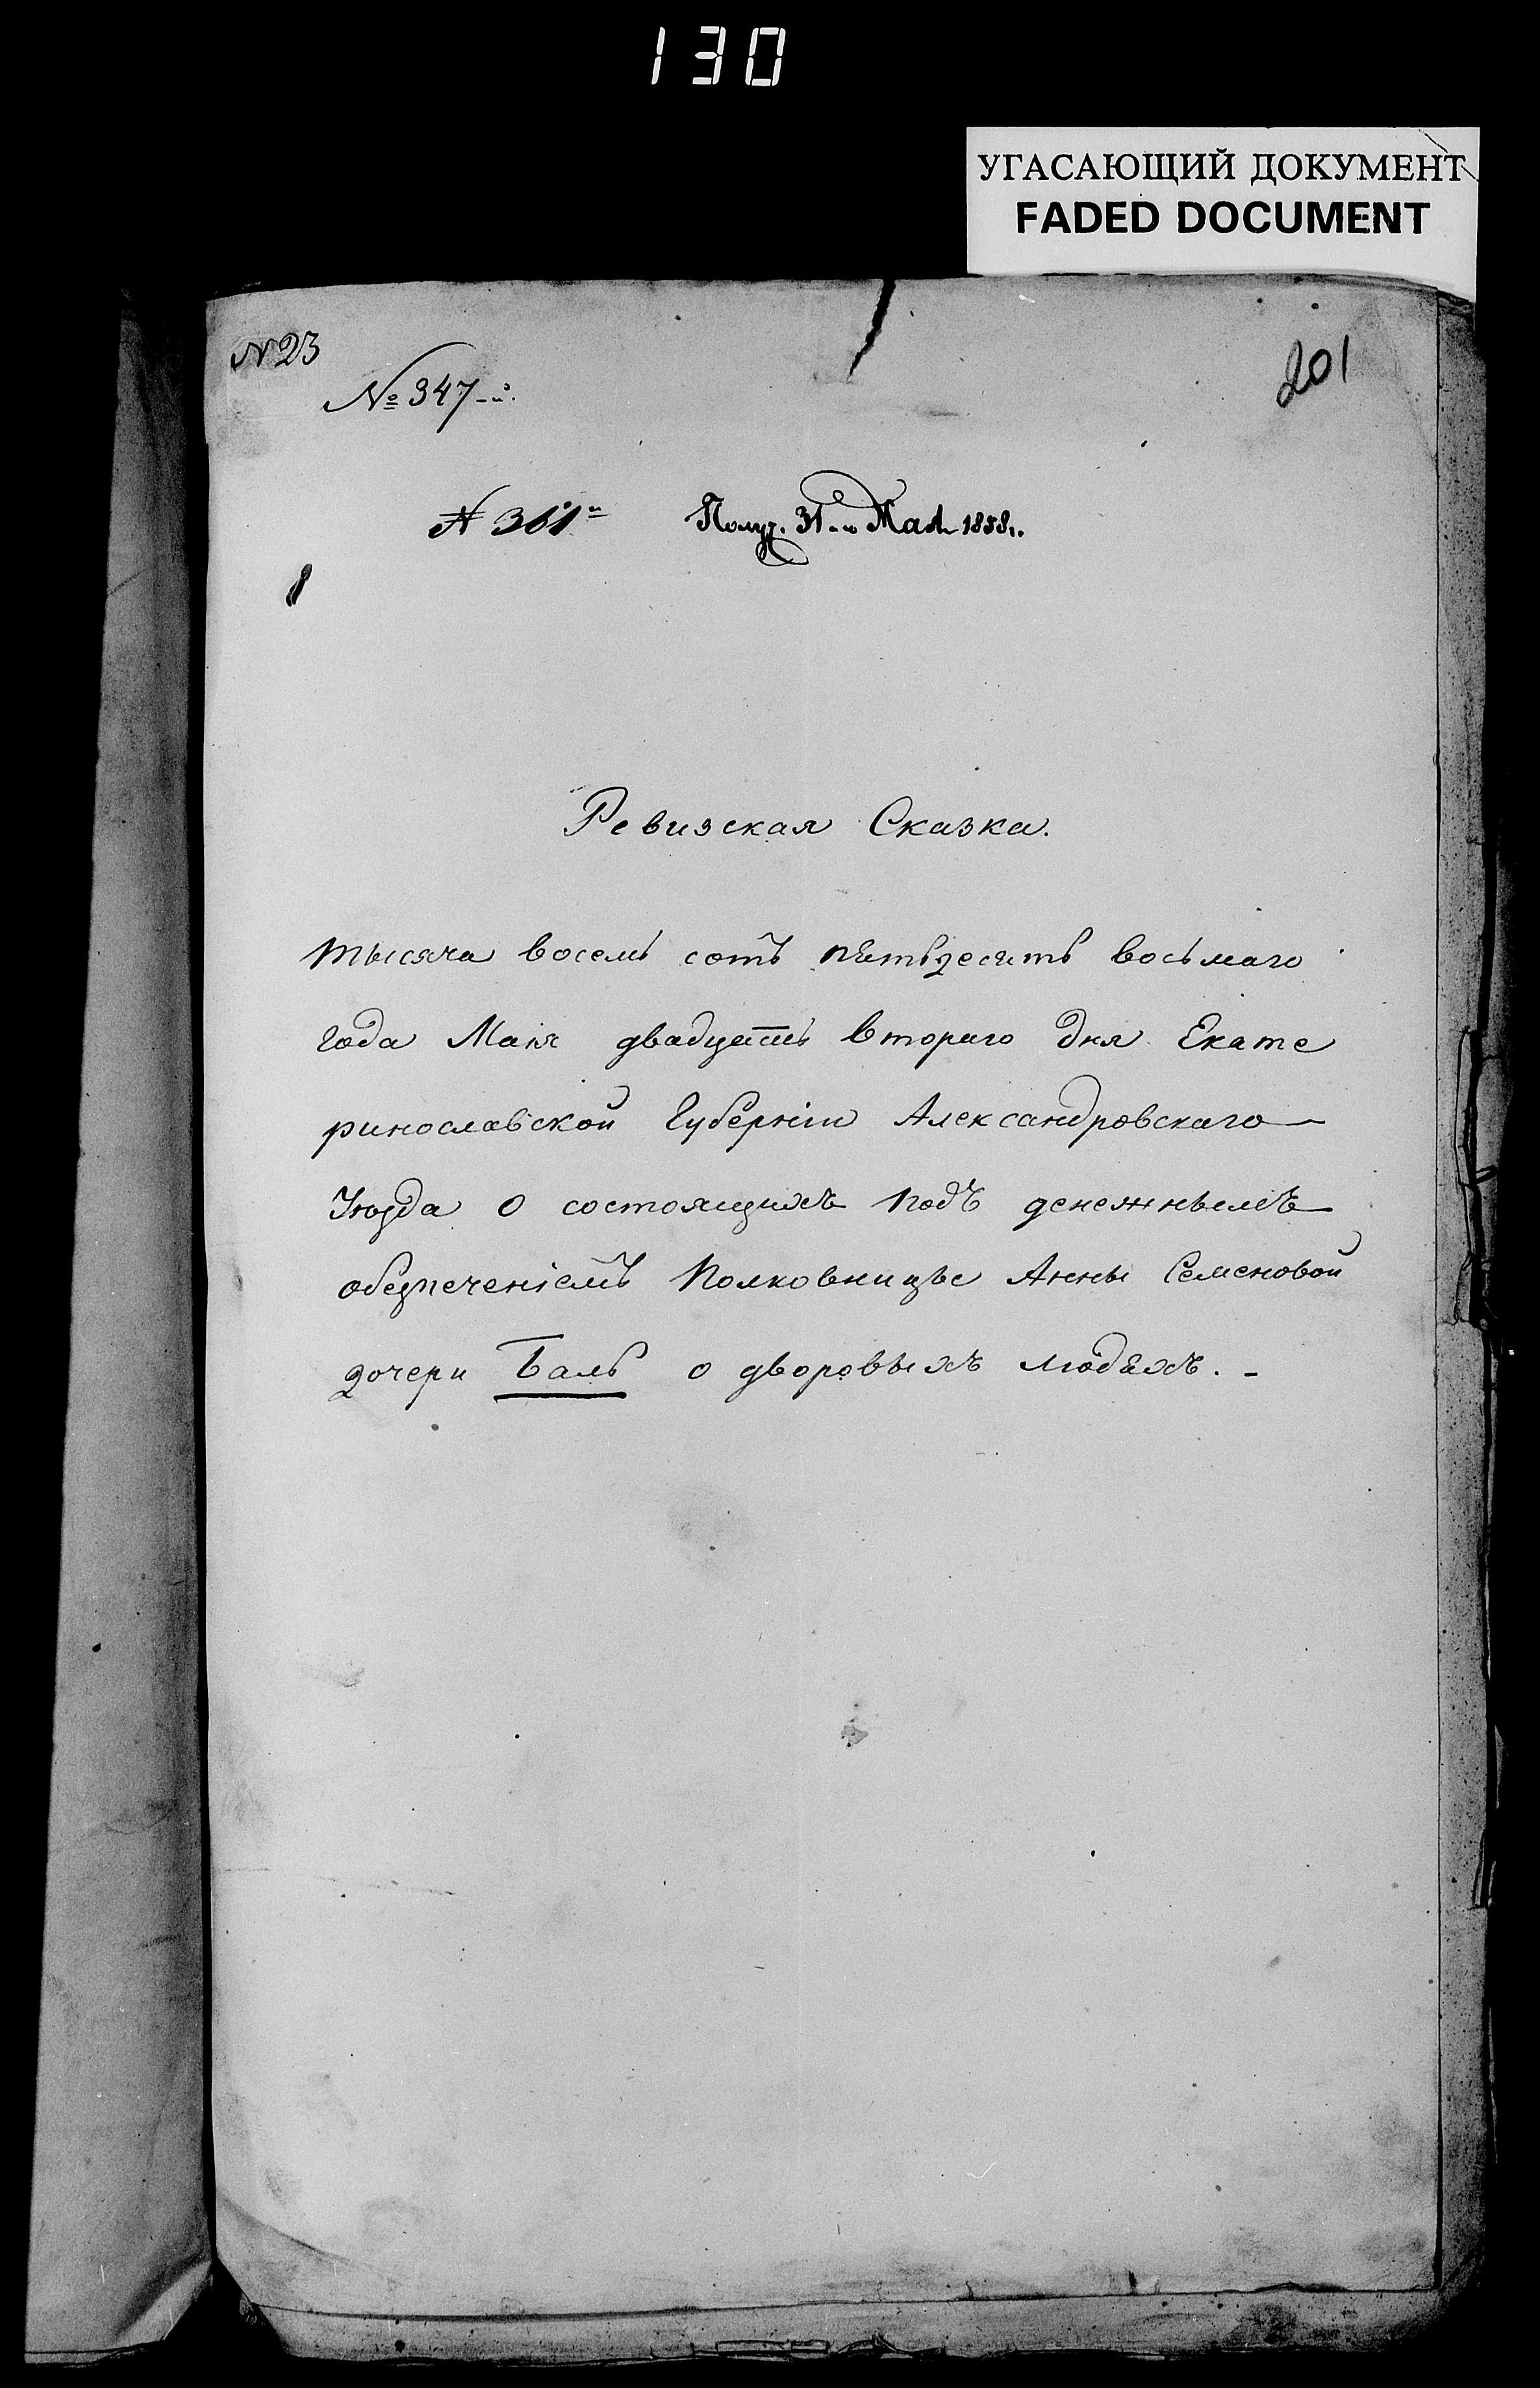 130
УГАСАЮЩИЙ ДОКУМЕНТ
FADED DOCUMENT
N 23
201
№ 347-й.
N 361й Получ. 31-го Мая 1858 г.
Ревизская Сказка.
тысяча восемь сотъ пятьдесятъ восьмаго
года Маія двадцать втораго дня Екате
ринославской Губерніи Александровскаго
Уѣзда о состоящихъ подъ денежнымъ
обезпеченіемъ Полковницы Анны Семеновой
дочери Баль о дворовыхъ людяхъ. -